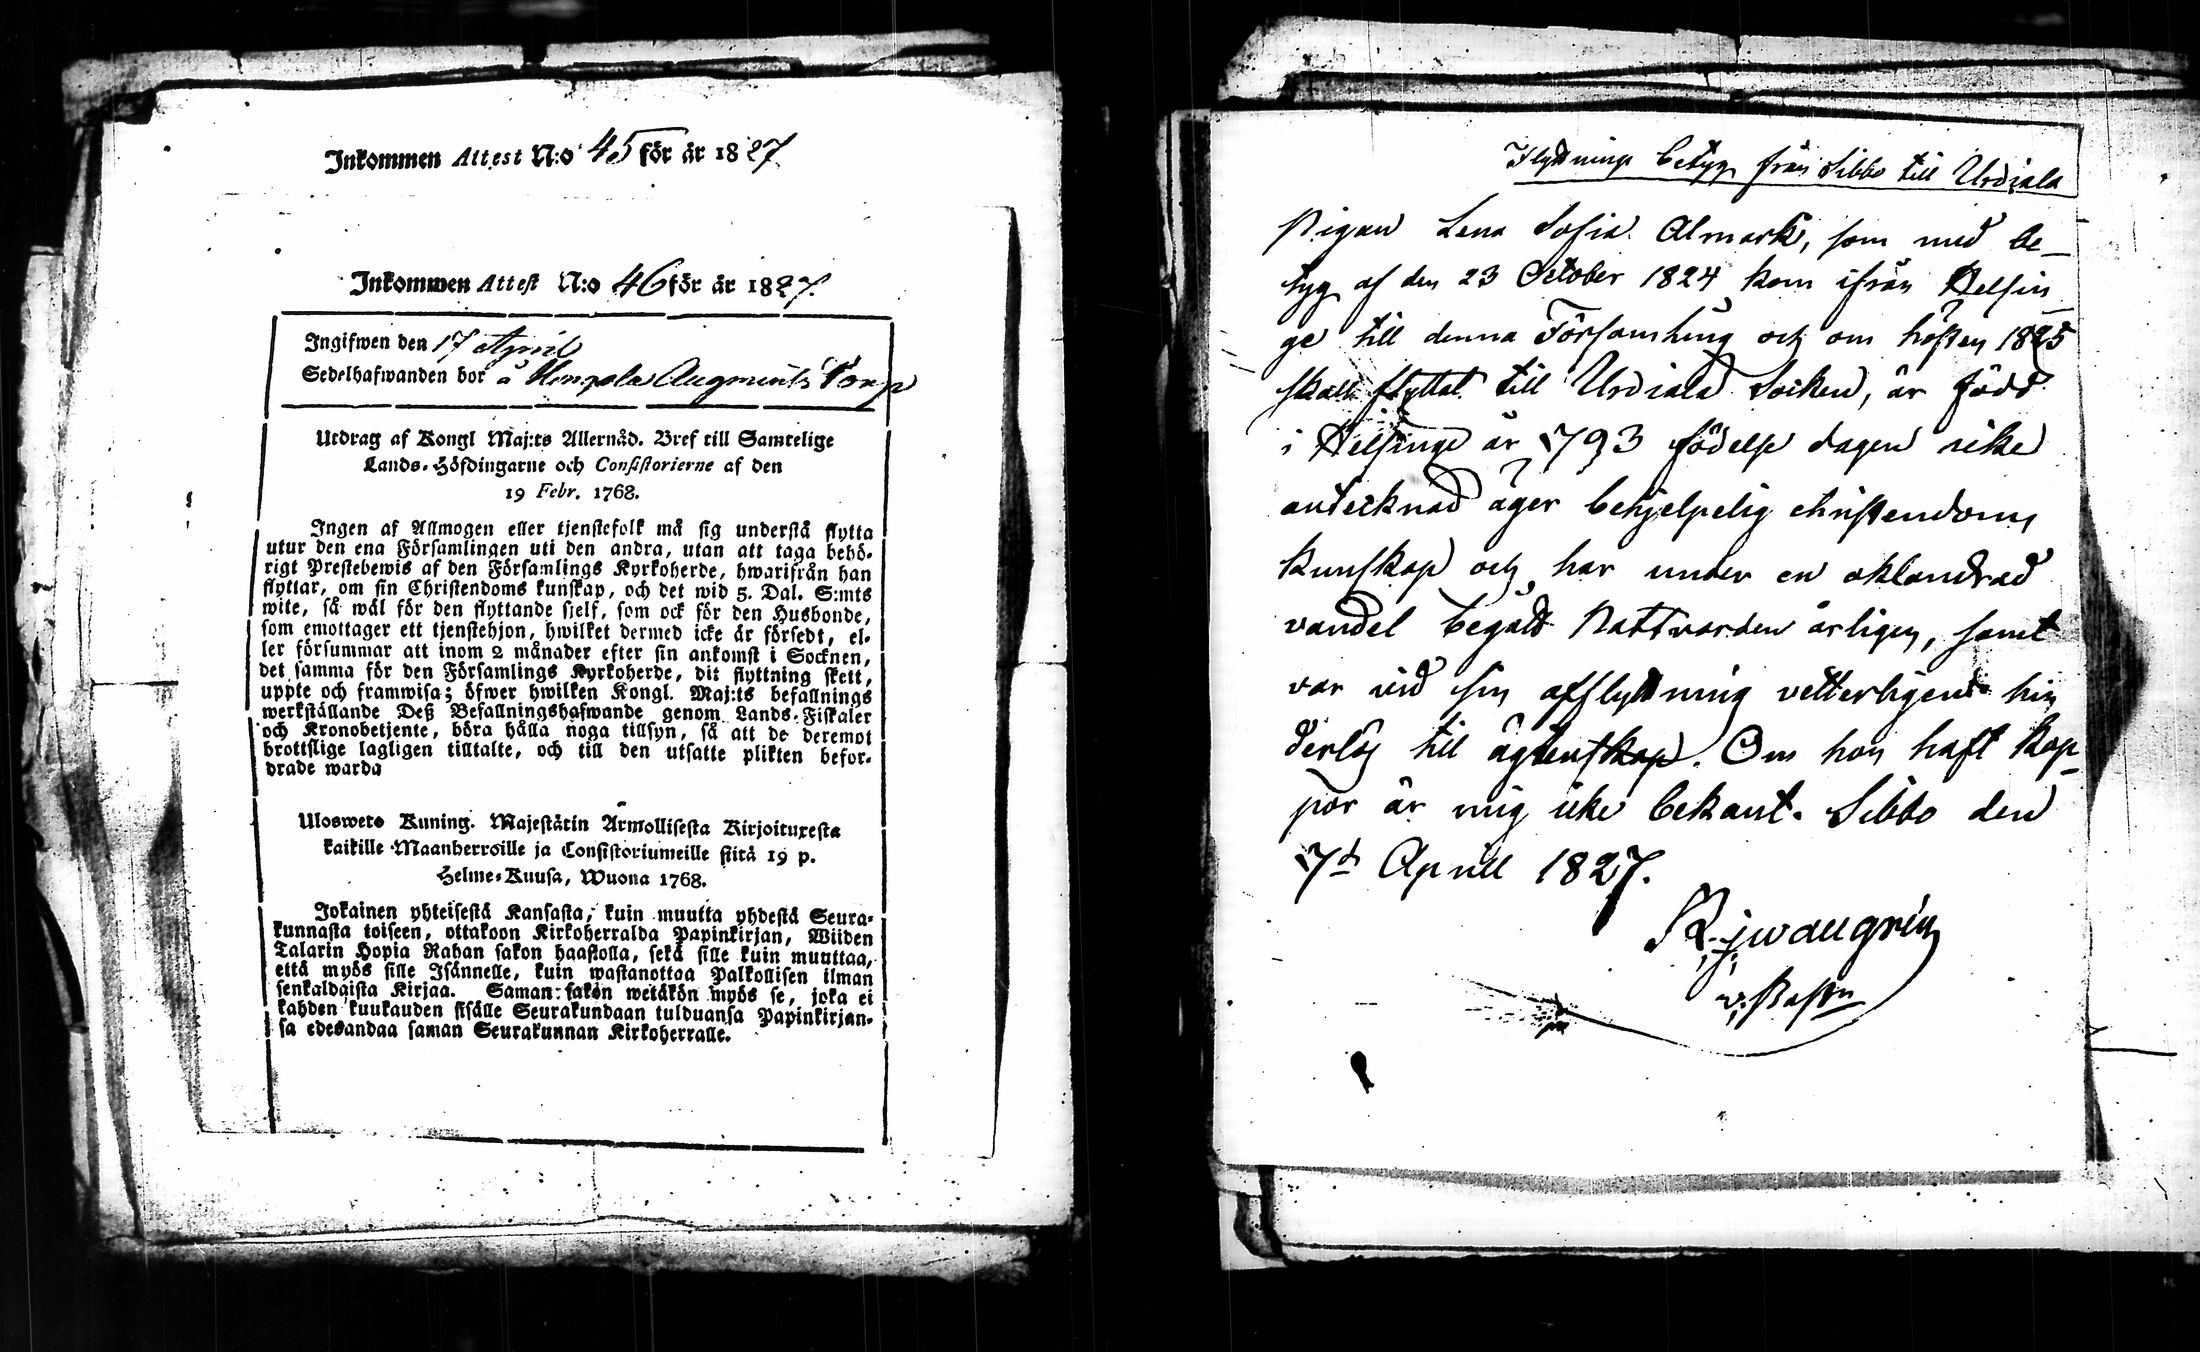 Inkommen Attest N:o 45 för år 1827.
Inkommen Attest N:o 46 för år 1827.
Ingifwen den 17 April
Sedelhafwanden bor å Augments Torp
Utdrag af Kongl Maj:ts Allernåd. Bref till Samtelige
Lands-Höfdingarne och Consistorierne af den
19 Febr. 1768.
Ingen af Allmogen eller tjenstefolk må sig understå flytta
utur den ena Församlingen uti den andra, utan att taga behö-
rigt Prestebewis af den Församlings Kyrkoherde, hwarifrån han
flyttar, om sin Christendoms kunskap, och det wid 5. Dal. S:mts
wite, så wäl för den flyttande sielf, som ock för den Husbonde,
som emottager ett tjenstehjon, hwilket dermed icke är försedt, el-
ler försummar att inom 2 månader efter sin ankomst i Socknen,
det samma för den Församlings Kyrkoherde, dit flyttning skett,
uppte och framwisa; öfwer hwilken Kongl. Maj:ts befallnings
werkställande Deß Befallningshafwande genom Lands-Fiskaler
och Kronobetjente, böra hålla noga tillsyn, så att de deremot
brottslige lagligen tilltalte, och till den utsatte plikten befor-
drade warda
Ulosweto Kuning. Majestätin Armollisesta Kirjoituxesta
kaikille Maanherroille ja Consistoriumeille siitä 19 p.
Helme-Kuusa, Wuona 1768.
Jokainen yhteisestä Kansasta, kuin muutta yhdestä Seura-
kunnasta toiseen, ottakoon Kirkoherralda Papinkirjan, Wiiden
Talarin Hopia Rahan sakon haastolla, sekä sille kuin muuttaa,
että myös sille Isännelle, kuin wastanottaa Palkollisen ilman
senkaldaista Kirjaa. Saman sakon wetäkön myös se, joka ei
kahden kuukauden sisälle Seurakundaan tulduansa Papinkirjan-
sa edesandaa saman Seurakunnan Kirkoherralle.
Flyttnings betyg från Sibbo till Urdiala
Pigan Lena Sofia Almark, som med be-
tyg af den 23 October 1824 kom ifrån Helsin-
ge till denna Församling och om hösten 1825
skall flyttat till Urdiala Socken, är född
i Helsinge år 1793 födelse dagen icke
antecknad äger behjelpelig christendoms
kunskap och har under en oklandrad
vandel begått Nattvarden årligen, samt
var vid sin afflyttning vetterligen hin
derlös till ägtenskap. Om hon haft kop-
por är mig icke bekant. Sibbo den
7d Aprill 1827.
v. Past.